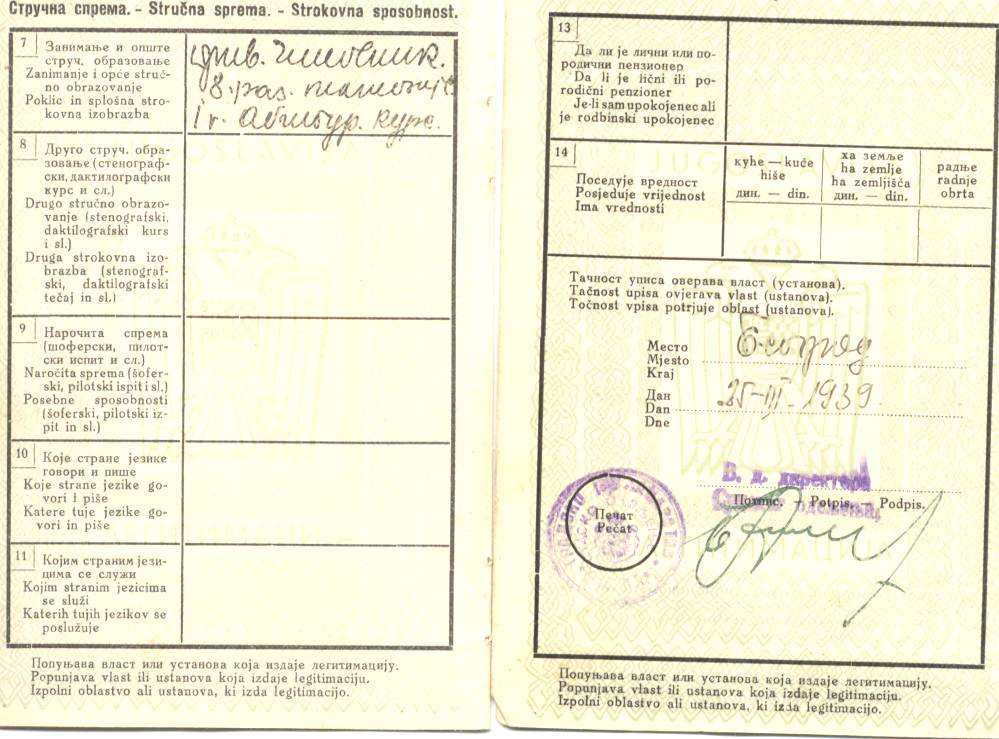 Стручна спрема. - Stručna sprema. - Strokovna sposobnost.
7
Занимање и опште
струч. образовање
Zanimanje i opće struč-
no obrazovanje
Poklic in splošna stro-
kovna izobrazba
прив. чиновник.
8. раз.
1 г. Абитур. курс.
8
Друго струч. обра-
зовање (стенограф-
ски, дактилографски
курс и сл.)
Drugo stručno obrazo-
vanje (stenografski,
daktilografski kurs
i sl.)
Druga strokovna izo-
brazba (stenograf-
ski, daktilografski
tečaj in sl.)
9
Нарочита спрема
(шоферски, пилот-
ски испит и сл.)
Naročita sprema (šofer-
ski, pilotski ispit i sl.)
Posebne sposobnosti
(šoferski, pilotski iz-
pit in sl.)
10
Које стране језике
говори и пише
Koje strane jezike go-
vori i piše
Katere tuje jezike go-
vori in piše
11
Којим страним јези-
цима се служи
Kojim stranim jezicima
se služi
Katerih tujih jezikov se
poslužuje
Попуњава власт или установа која издаје легитимацију.
Popunjava vlast ili ustanova koja izdaje legitimaciju.
Izpolni oblastvo ali ustanova, ki izda legitimacijo.
13
Да ли је лични или по-
родични пензионер
Da li je lični ili po-
rodični penzioner
Je-li sam upokojenec ali
je rodbinski upokojenec
14
Поседује вредност
Posjeduje vrijednost
Ima vrednosti
куће — kuće
hiše
дин. — din.
ха земље
ha zemlje
ha zemljišča
дин. — din.
радње
radnje
obrta
Тачност уписа оверава власт (установа).
Tačnost upisa ovjerava vlast (ustanova).
Točnost vpisa potrjuje oblast (ustanova).
Место
Mjesto
Kraj
Београд
Дан
Dan
Dne
25-III-1939
В. д. директора
Потпис. — Potpis. — Podpis.
Печат
Pečat
Попуњава власт или установа која издаје легитимацију.
Popunjava vlast ili ustanova koja izdaje legitimaciju.
Izpolni oblastvo ali ustanova, ki izda legitimacijo.